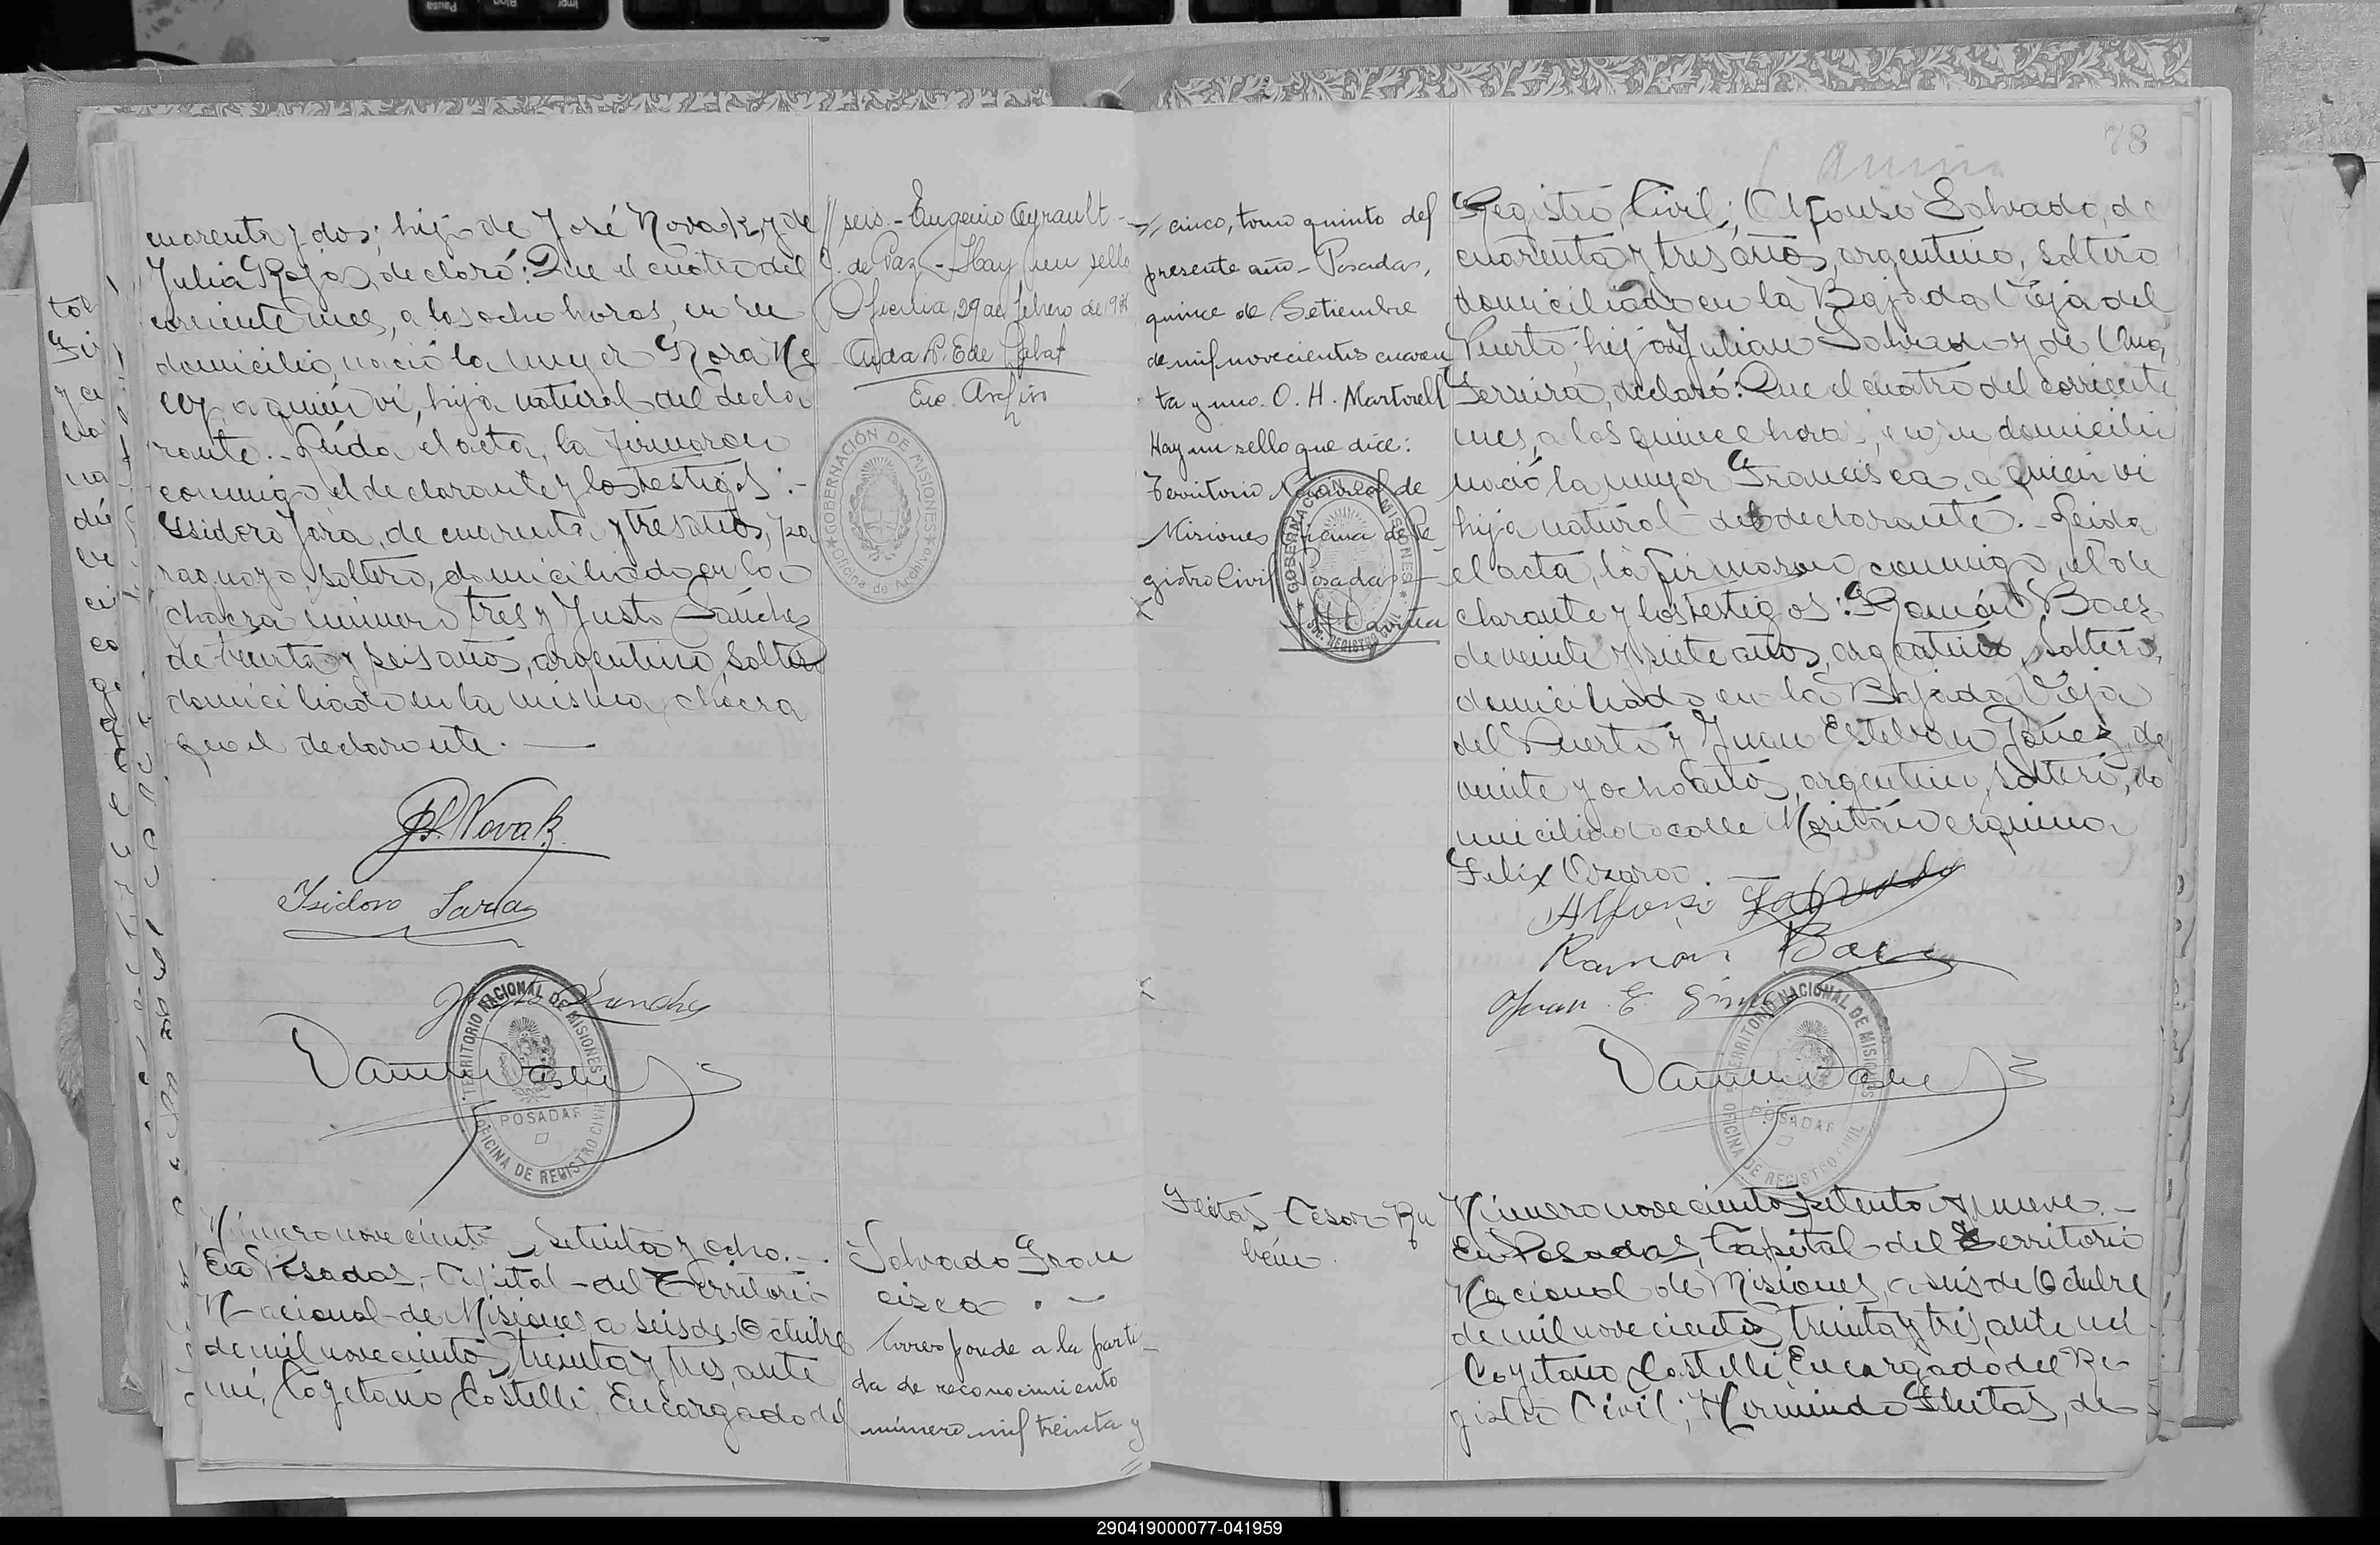 cuarenta y dos; hijo de José Novak, y de
Julia Rojas, declaró: Que el cuatro del
corriente mes, a las ocho horas, en su
domicilio, nació la mujer Nora Ne
lly, a quién ví, hija natural del decla
rante. - Leída el acta, la firmaron
conmigo, el declarante y los testigos: -
Isidoro Jara, de cuarenta y tres años, pa
raguayo, soltero, domiciliado en la
chacra número tres y Justo Sánchez
de treinta y seis años, argentino, soltero
domiciliado en la misma chacra
que el declarante. -
Novak
Isidoro Jara
Justo Sanchez
TERRITORIO NACIONAL DE MISIONES
POSADAS
OFICINA DE REGISTRO CIVIL
Número novecientos setenta y ocho. -
En Posadas, Capital del Territorio
Nacional de Misiones, a seis de Octubre
de mil novecientos treinta y tres, ante
mí, Cayetano Castelli, Encargado del
// seis - Eugenio Ayrault -
J. de Paz - Hay un sello
Oficina, 29 de febrero de 19
Enc. Archivo
GOBERNACIÓN DE MISIONES
Oficina de Archivo
Salvado Fran
cisca. -
Corresponde a la parti-
da de reconocimiento
número mil treinta y
//
// cinco, tomo quinto del
presente año - Posadas,
quince de Setiembre
de mil novecientos cuaren
ta y uno. O. H. Martorell
Hay un sello que dice:
Territorio Nacional de
Misiones Oficina de Re-
gistro Civil Posadas -
GOBERNACION DE MISIONES
SEC. REGISTRO CIVIL
Fleitas Cesar Ru
bén.
78
Registro Civil; Alfonso Salvado, de
cuarenta y tres años, argentino, soltero
domiciliado en la Bajada Vieja del
Puerto; hijo de Julian Salvado y de Ana
Ferreira, declaró: Que el cuatro del corriente
mes, a las quince horas, en su domicilio
nació la mujer Francisca, a quién ví
hija natural del declarante. - Leida
el acta, la firmaron conmigo, el de
clarante y los testigos: Ramón Baez
de veinte y siete años, argentino, soltero,
domiciliado en la Bajada Vieja
del Puerto y Juan Esteban Gímez, de
veinte y ocho años, argentino, soltero, do
miciliado calle Maritán esquina
Felix Azara.
Alfonso Salvado
Ramón Baez
Juan E. Gímez
TERRITORIO NACIONAL DE MISIONES
POSADAS
OFICINA DE REGISTRO CIVIL
Número novecientos setenta y nueve. -
En Posadas, Capital del Territorio
Nacional de Misiones, a seis de Octubre
de mil novecientos treinta y tres, ante mí
Cayetano Castelli, Encargado del Re
gistro Civil; Herminda Fleitas, de
290419000077-041959